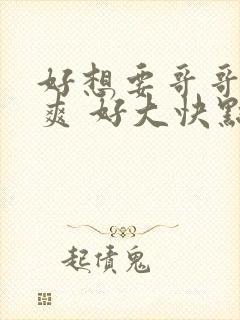 好想要哥哥
爽 好大快點
起債鬼